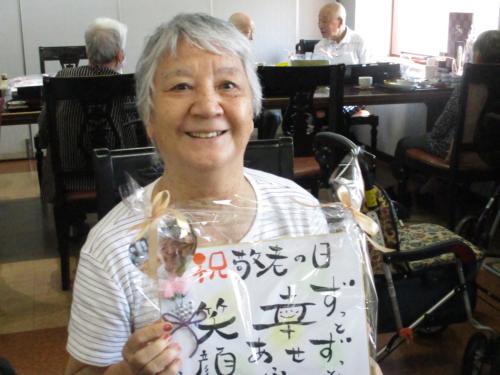 祝敬老の日
ずっとずっと
幸せあふ
笑顔